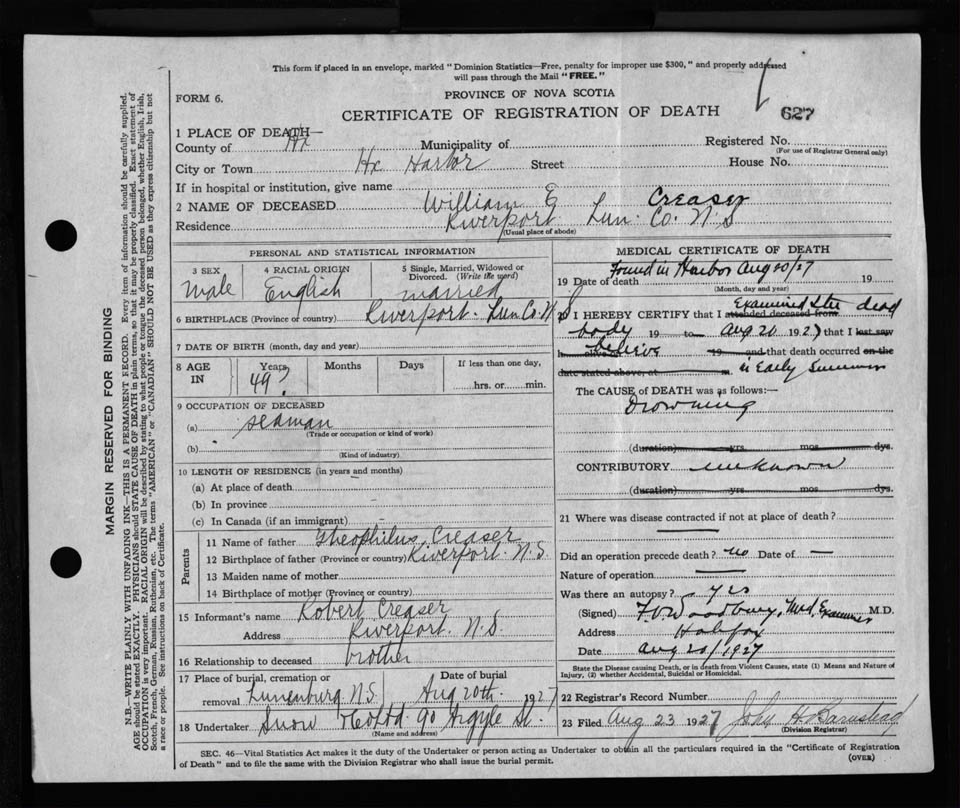 This form if placed in an envelope, marked "Dominion Statistics—Free, penalty for improper use $300," and properly addressed
will pass through the Mail "FREE."
FORM 6.
PROVINCE OF NOVA SCOTIA
CERTIFICATE OF REGISTRATION OF DEATH
627
1 PLACE OF DEATH—
County of Hx Municipality of Registered No.
(For use of Registrar General only)
City or Town Hx Harbor Street House No.
If in hospital or institution, give name
2 NAME OF DECEASED William E Creaser
Residence Riverport Lun. Co. N.S
(Usual place of abode)
PERSONAL AND STATISTICAL INFORMATION
3 SEX 4 RACIAL ORIGIN 5 Single, Married, Widowed or
Divorced. (Write the word)
Male English married
6 BIRTHPLACE (Province or country) Riverport. Lun Co. N.S
7 DATE OF BIRTH (month, day and year)
8 AGE IN Years Months Days If less than one day,
49? hrs. or min.
9 OCCUPATION OF DECEASED
(a) seaman
(Trade or occupation or kind of work)
(b)
(Kind of industry)
10 LENGTH OF RESIDENCE (in years and months)
(a) At place of death
(b) In province
(c) In Canada (if an immigrant)
Parents
11 Name of father Theophilus Creaser
12 Birthplace of father (Province or country) Riverport. N.S.
13 Maiden name of mother
14 Birthplace of mother (Province or country)
15 Informant's name Robert Creaser
Address Riverport. N.S.
16 Relationship to deceased brother
17 Place of burial, cremation or Date of burial
removal Lunenburg N.S. Aug 20th 1927
18 Undertaker Snow & Co Ltd 90 Argyle St.
(Name and address)
MEDICAL CERTIFICATE OF DEATH
19 Date of death Found in Harbor Aug 20/27 19
(Month, day and year)
Examined the dead
I HEREBY CERTIFY that I attended deceased from
body 19 to Aug 20 1927 that I last saw
believe 19 and that death occurred on the
date stated above, at m. in Early Summer
The CAUSE of DEATH was as follows:—
Drowning
(duration) yrs. mos. dys.
CONTRIBUTORY unknown
(duration) yrs. mos. dys.
21 Where was disease contracted if not at place of death?
Did an operation precede death? no Date of —
Nature of operation —
Was there an autopsy? yes
(Signed) Woodbury, Med. Examiner M.D.
Address Halifax
Date Aug 20/1927
State the Disease causing Death, or in death from Violent Causes, state (1) Means and Nature of
Injury, (2) whether Accidental, Suicidal or Homicidal.
22 Registrar's Record Number
23 Filed Aug 23 1927 John H. Barnstead
(Division Registrar)
SEC. 46—Vital Statistics Act makes it the duty of the Undertaker or person acting as Undertaker to obtain all the particulars required in the "Certificate of Registration
of Death" and to file the same with the Division Registrar who shall issue the burial permit. (OVER)
MARGIN RESERVED FOR BINDING
N.B.—WRITE PLAINLY WITH UNFADING INK—THIS IS A PERMANENT RECORD. Every item of information should be carefully supplied.
AGE should be stated EXACTLY. PHYSICIANS should STATE CAUSE OF DEATH in plain terms, so that it may be properly classified. Exact statement of
OCCUPATION is very important. RACIAL ORIGIN will be described by stating to what people or tongue the deceased person belonged, whether English, Irish,
Scotch, French, German, Russian, Ruthenian, etc. The terms "AMERICAN" or "CANADIAN" SHOULD NOT BE USED as they express citizenship but not
a race or people. See instructions on back of Certificate.